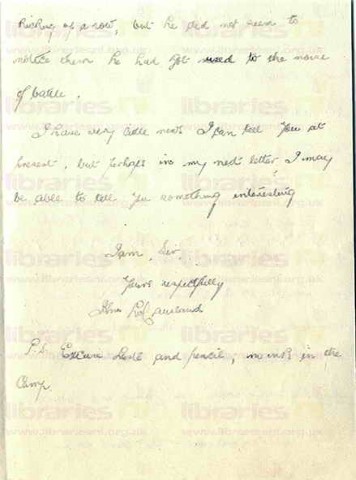 kicking up a row, but he did not seem to
notice them he had got used to the noise
of battle.
I have very little news I can tell you at
present, but perhaps in my next letter I may
be able to tell you something interesting
I am, Sir,
Yours respectfully
John
P.S. Excuse and pencil, no ink in the
Camp
libraries
www.librariesni.org.uk